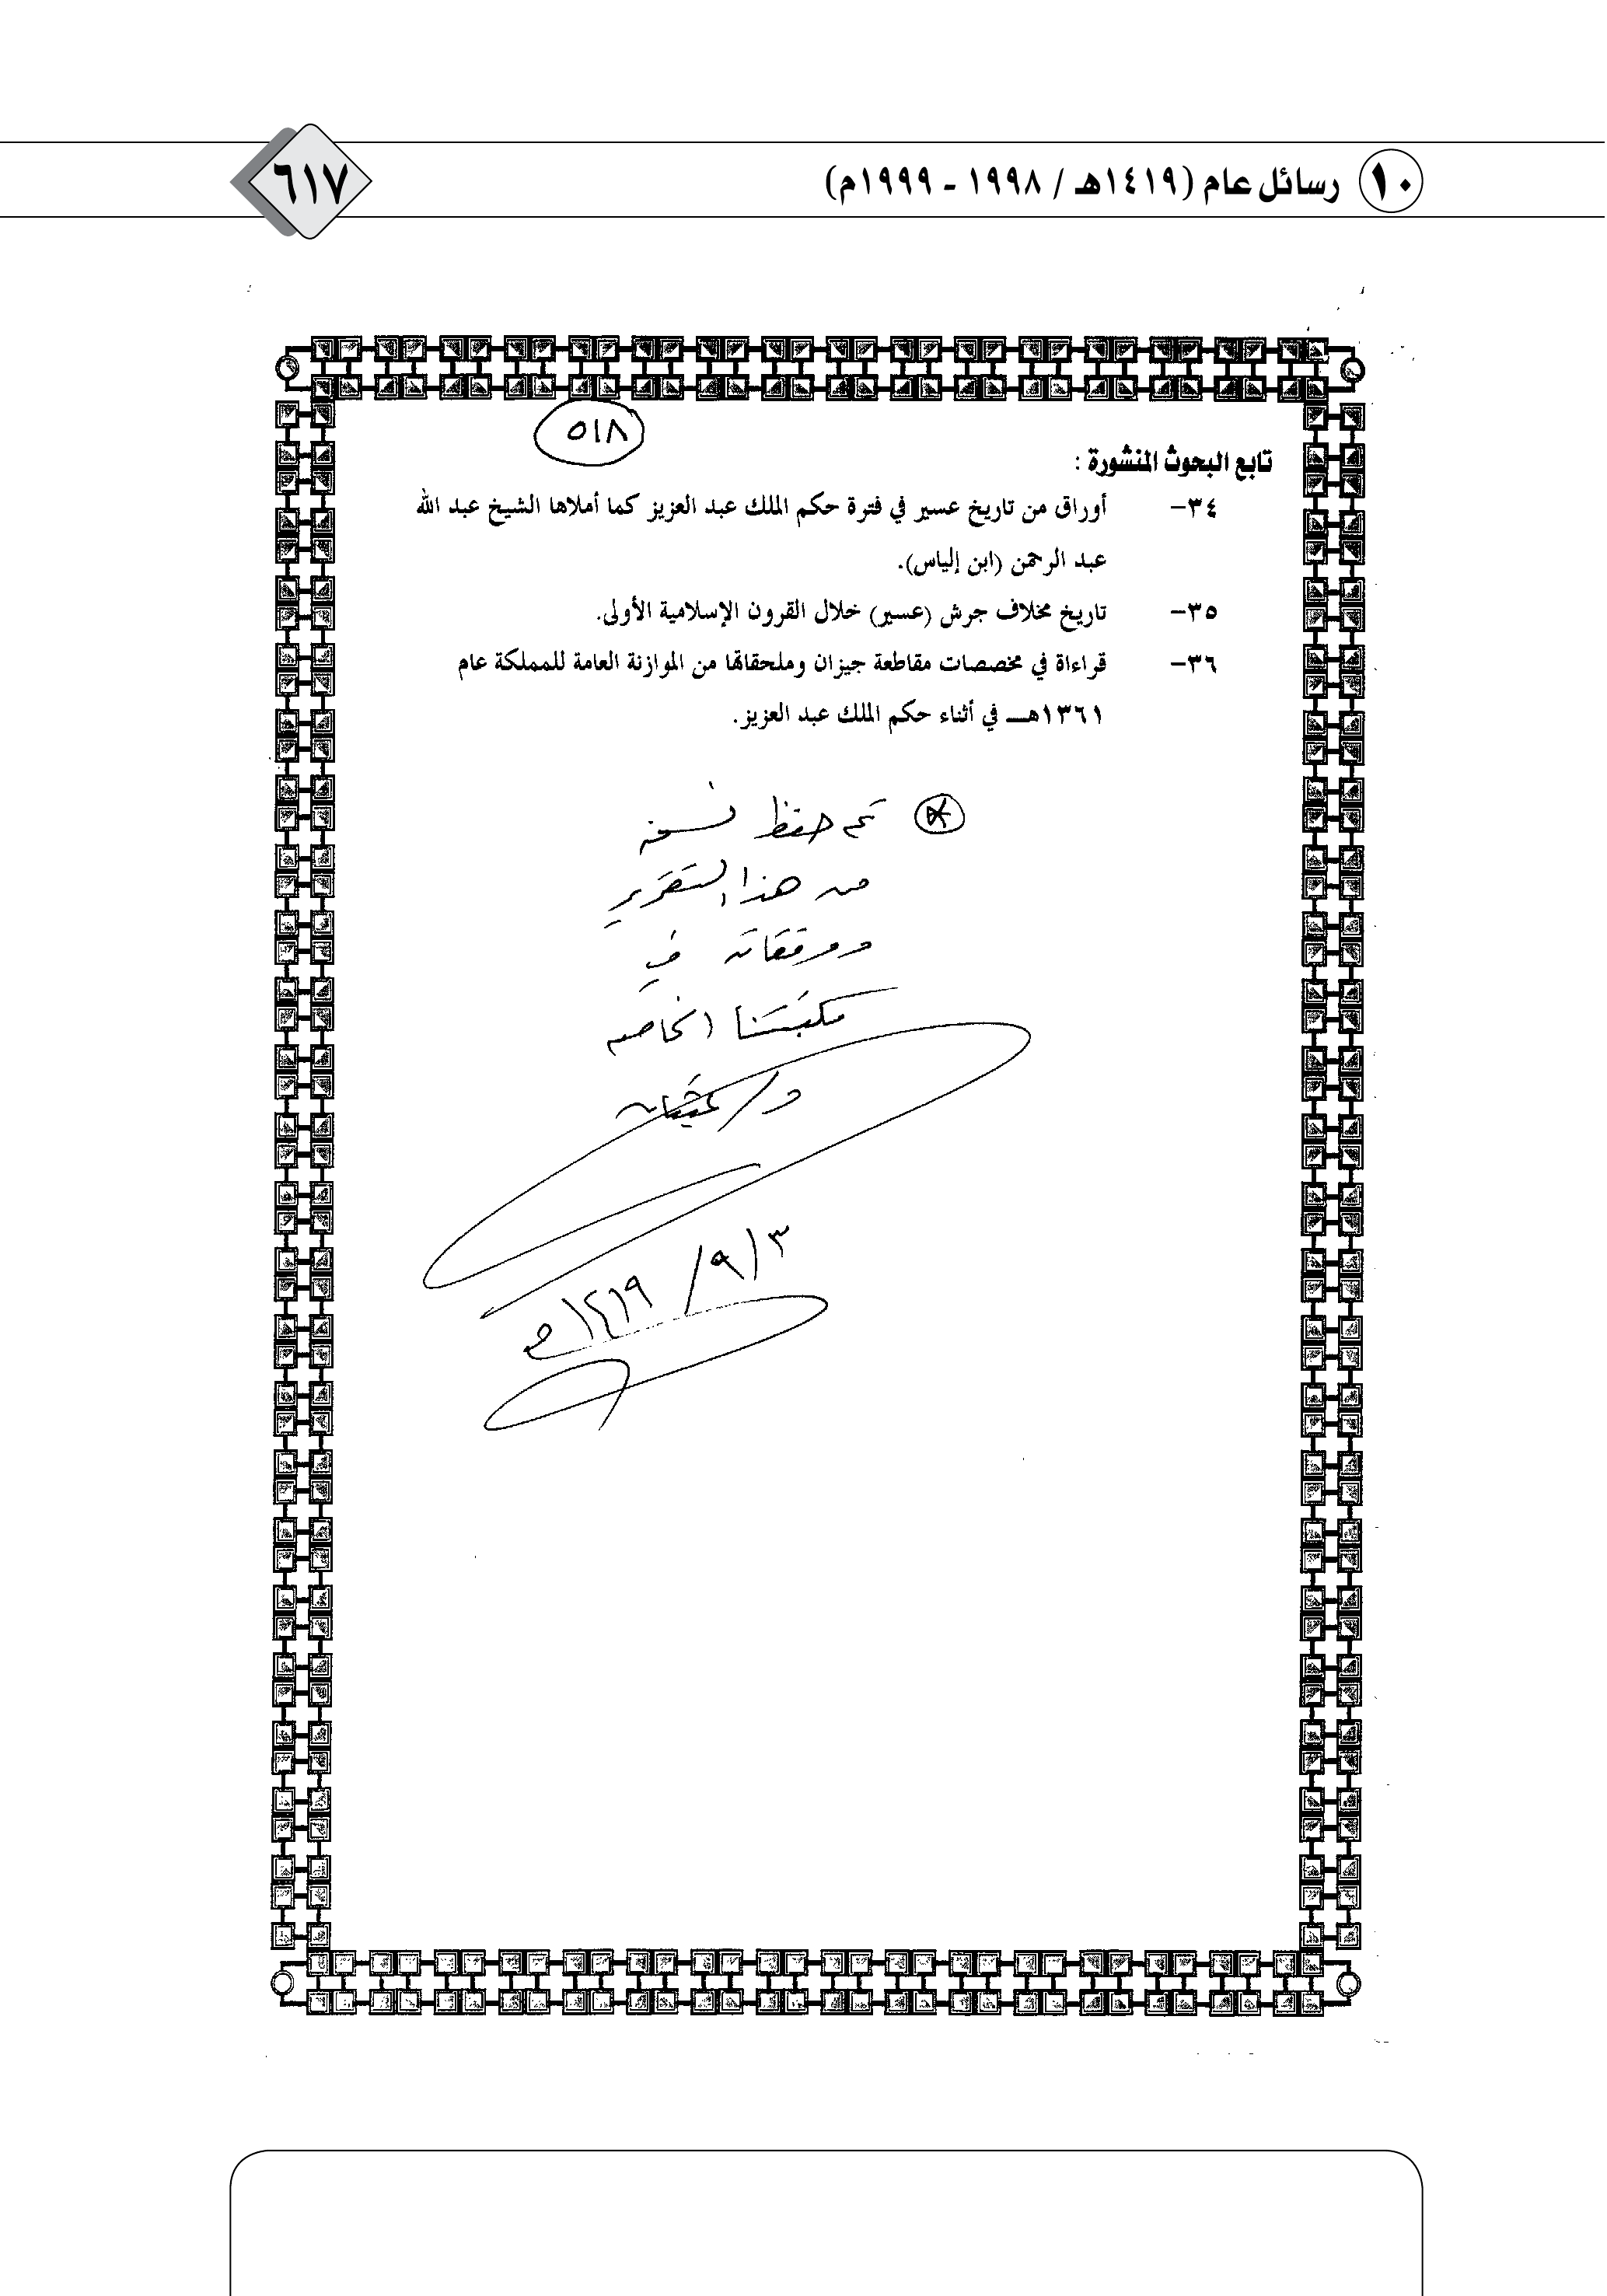 ١٠ رسائل عام (١٤١٩هـ / ١٩٩٨ - ١٩٩٩م) ٦١٧
٥١٨
تابع البحوث المنشورة :
٣٤- أوراق من تاريخ عسير في فترة حكم الملك عبد العزيز كما أملاها الشيخ عبد الله
عبد الرحمن (ابن إلياس).
٣٥- تاريخ مخلاف جرش (عسير) خلال القرون الإسلامية الأولى.
٣٦- قراءاة في مخصصات مقاطعة جيزان وملحقاتها من الموازنة العامة للمملكة عام
١٣٦١هــ في أثناء حكم الملك عبد العزيز.
تم حفظ نسخه
من هذا التقرير
ومرفقاته في
مكتبتنا الخاصه
د/ غيثان
٣/٩/١٤١٩هـ